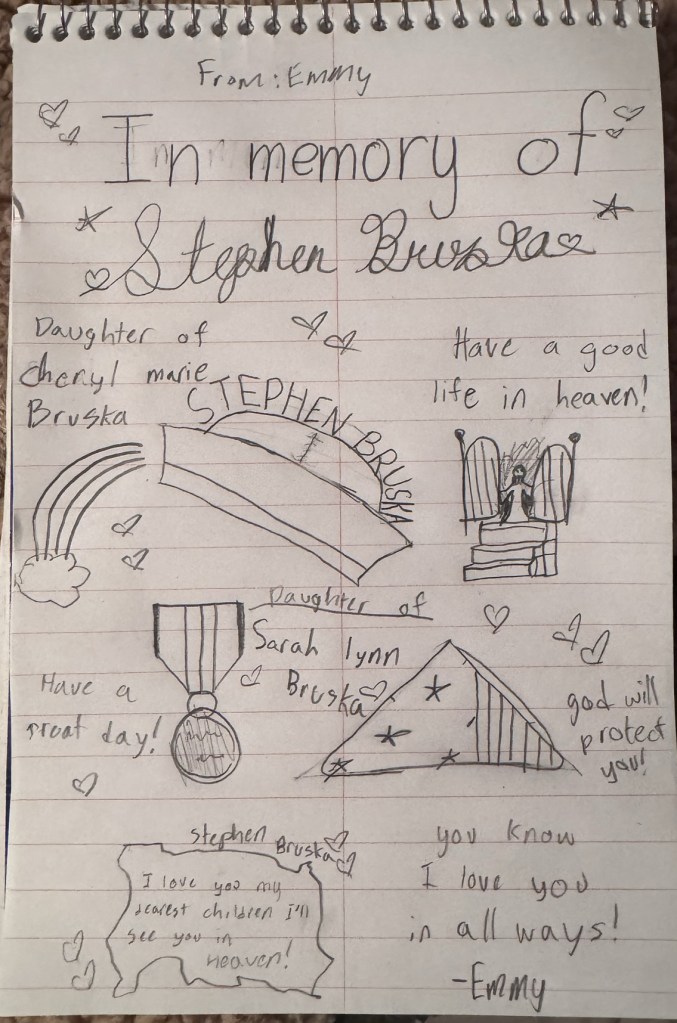 From: Emmy
In memory of
Stephen Bruska
Daughter of
cheryl marie
Bruska
Have a good
life in heaven!
STEPHEN BRUSKA
Daughter of
Sarah lynn
Bruska
Have a
great day!
god will
protect
you!
stephen Bruska
I love you my
dearest children I'll
see you in
heaven!
you know
I love you
in all ways!
-Emmy